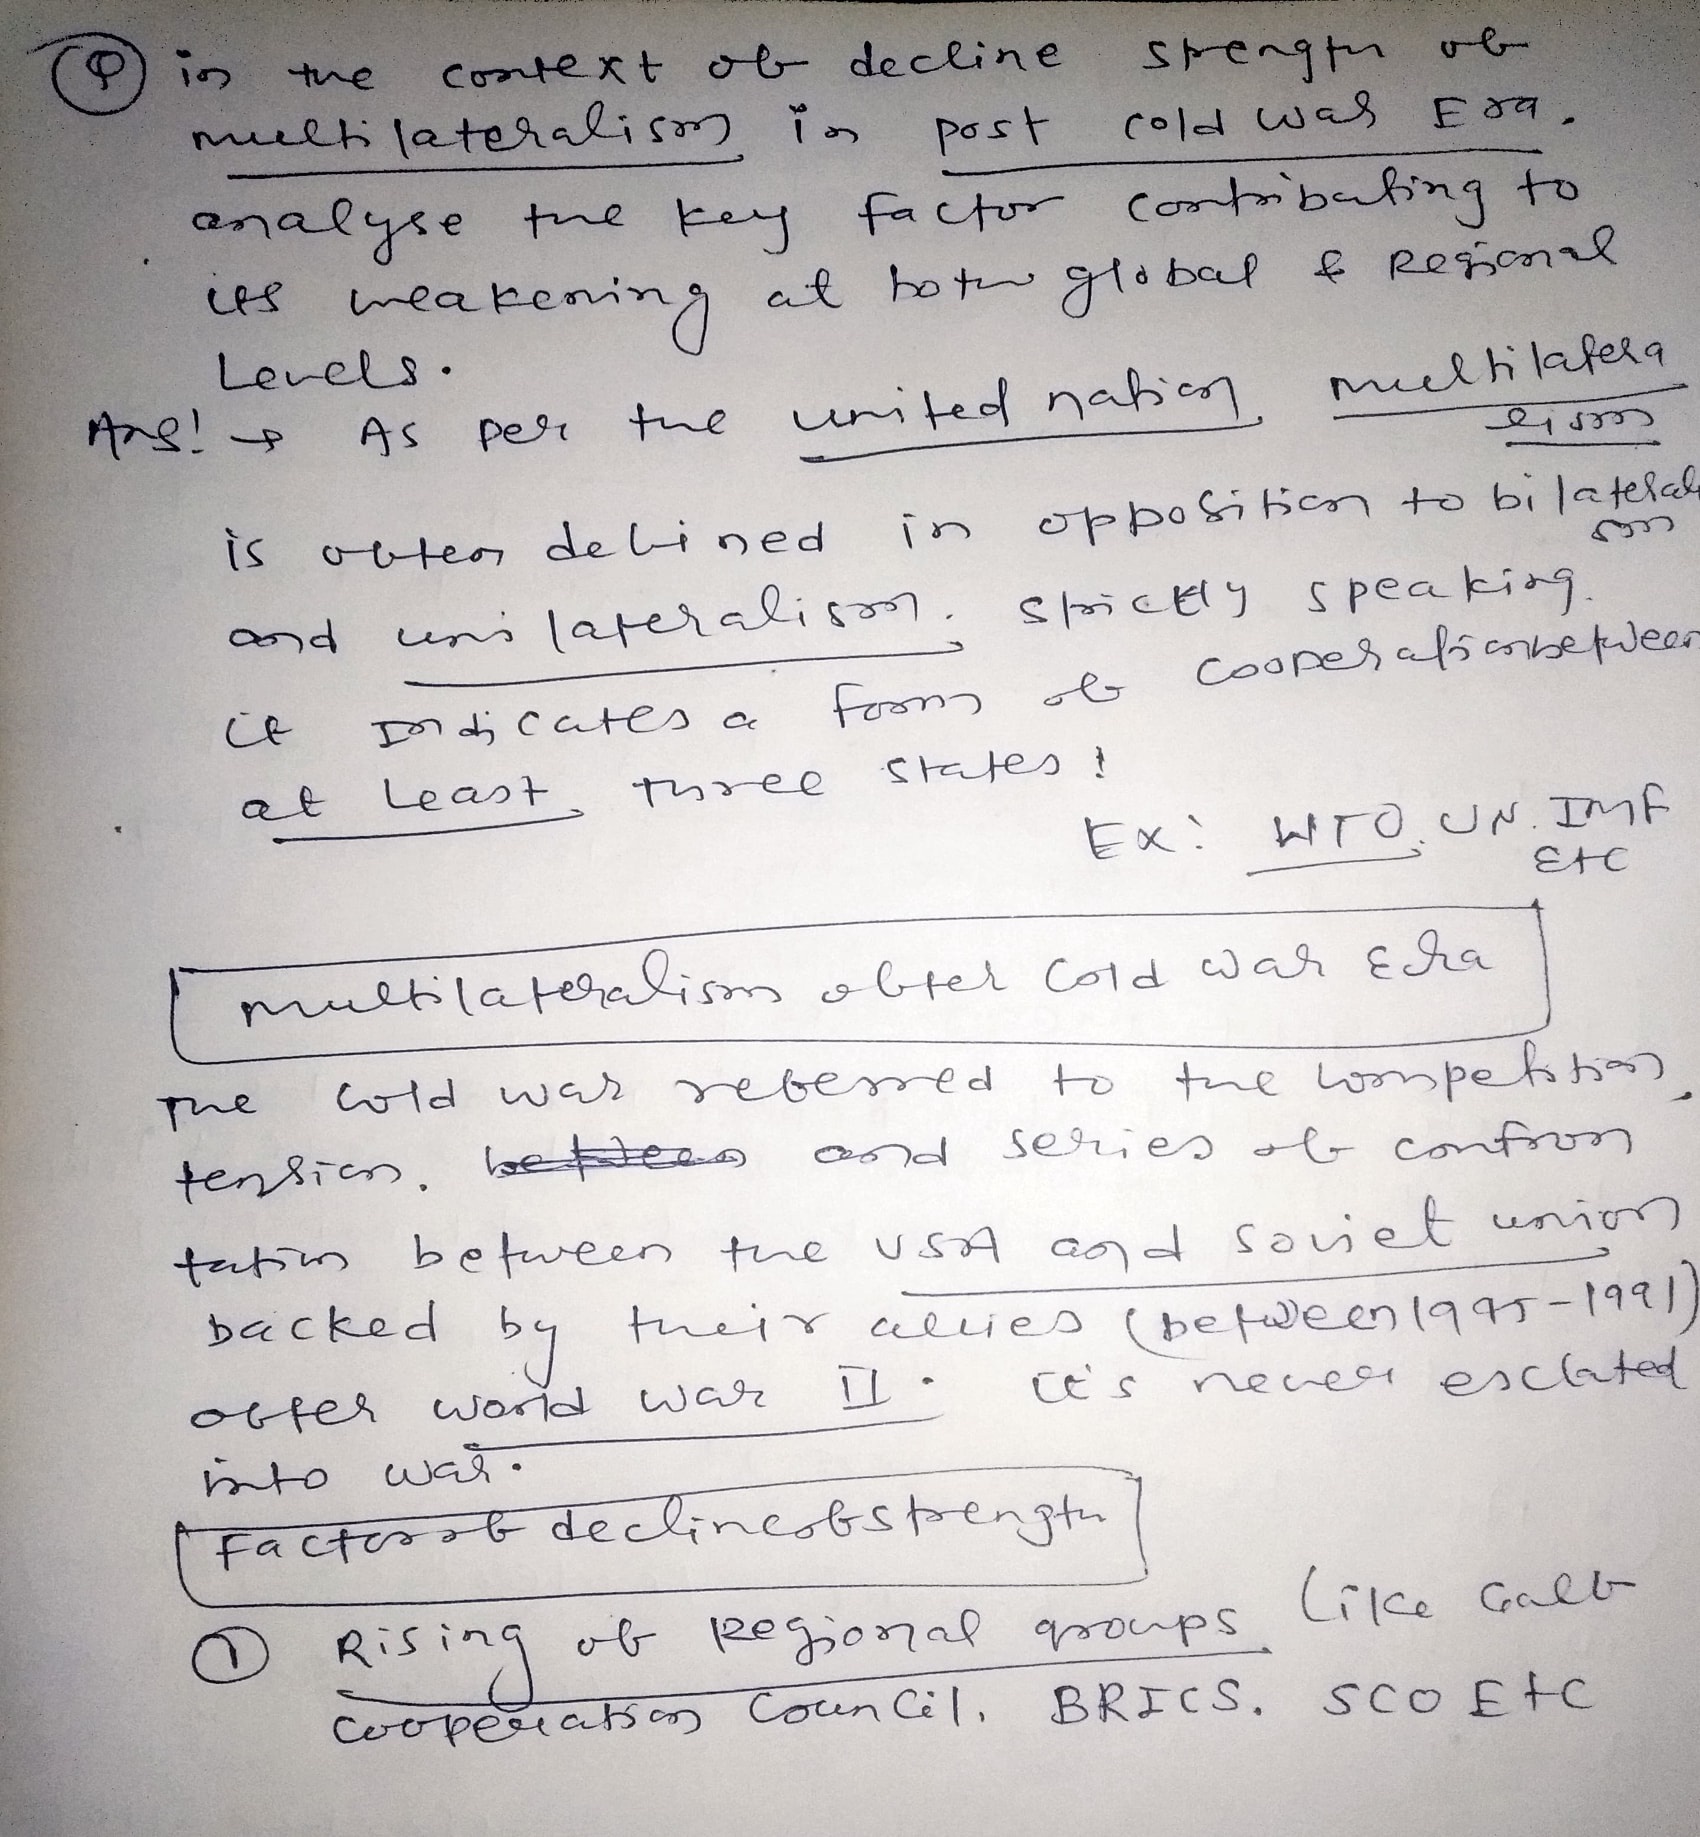 Q in the context of decline strength of
multilateralism in post cold war Era.
analyse the key factor contributing to
its weakening at both global & Regional
Levels.
Ans: → As per the united nation, multilatera
lism
is often defined in opposition to bilaterali
sm
and unilateralism. strictly speaking.
it indicates a form of cooperation between
at least three states!
Ex: WTO, UN. IMF
Etc
multilateralism after cold war Era
The cold war referred to the competition,
tension. between and series of confron
tation between the USA and soviet union
backed by their allies (between 1945-1991)
after world war II. it's never esclated
into war.
Factor of decline of strength
① Rising of Regional groups like Gulf
cooperation Council, BRICS, SCO Etc